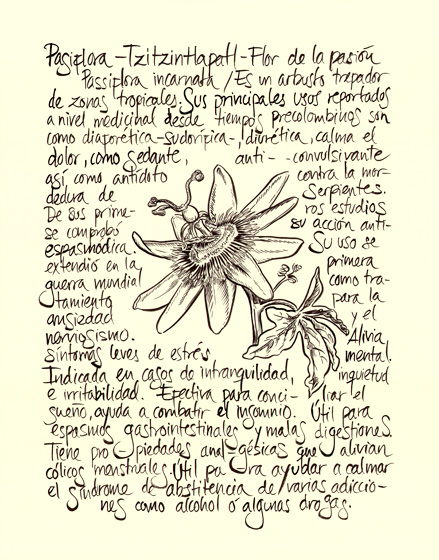 Pasiflora - Tzitzintlapatl - Flor de la pasión
Passiflora incarnata / Es un arbusto trepador
de zonas tropicales. Sus principales usos reportados
a nivel medicinal desde tiempos precolombinos son
como diaforética-sudorífica-, diurética, calma el
dolor, como sedante, anti- -convulsivante
así como antídoto contra la mor-
dedura de serpientes.
De sus prime- ros estudios
se comprobó su acción anti-
espasmódica. Su uso se
extendió en la primera
guerra mundial como tra-
tamiento para la
ansiedad y el
nerviosismo. Alivia
síntomas leves de estrés mental.
Indicada en casos de intranquilidad, inquietud
e irritabilidad. Efectiva para conci- liar el
sueño, ayuda a combatir el insomnio. Útil para
espasmos gastrointestinales y malas digestiones.
Tiene propiedades analgésicas que alivian
cólicos menstruales. Útil para ayudar a calmar
el síndrome de abstitencia de varias adiccio-
nes como alcohol o algunas drogas.